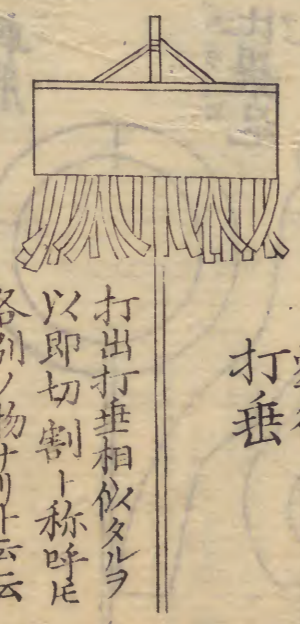 打垂
打出打埀相似タルヲ
以即切割ト称呼㆑
各別ノ物ナリト云云